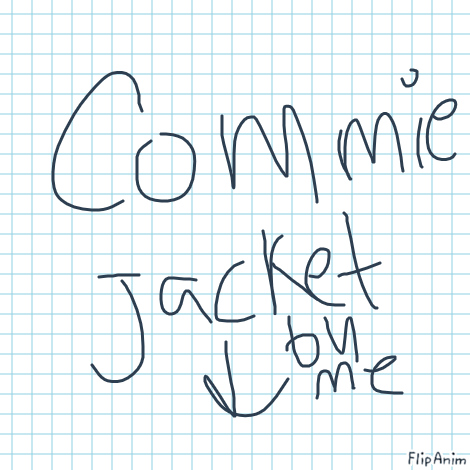 Commie
Jacket
on
me
FlipAnim